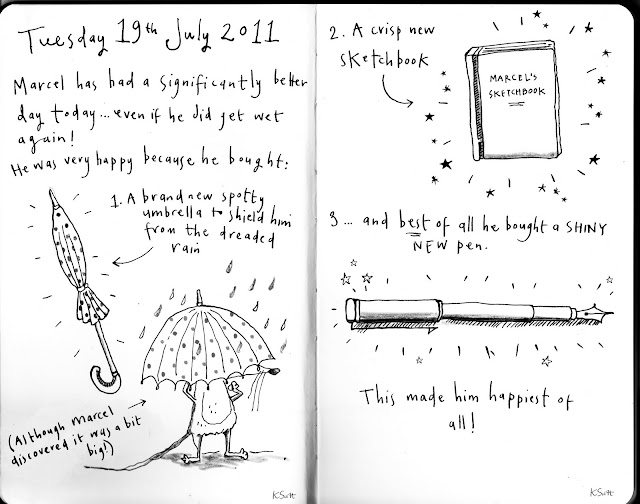 Tuesday 19th July 2011
Marcel has had a significantly better
day today... even if he did get wet
again!
He was very happy because he bought:
1. A brand new spotty
umbrella to shield him
from the dreaded
rain
(Although Marcel
discovered it was a bit
big!)
KSutt
2. A crisp new
sketchbook
MARCEL'S
SKETCHBOOK
3... and best of all he bought a SHINY
NEW pen.
This made him happiest of
all!
KSutt